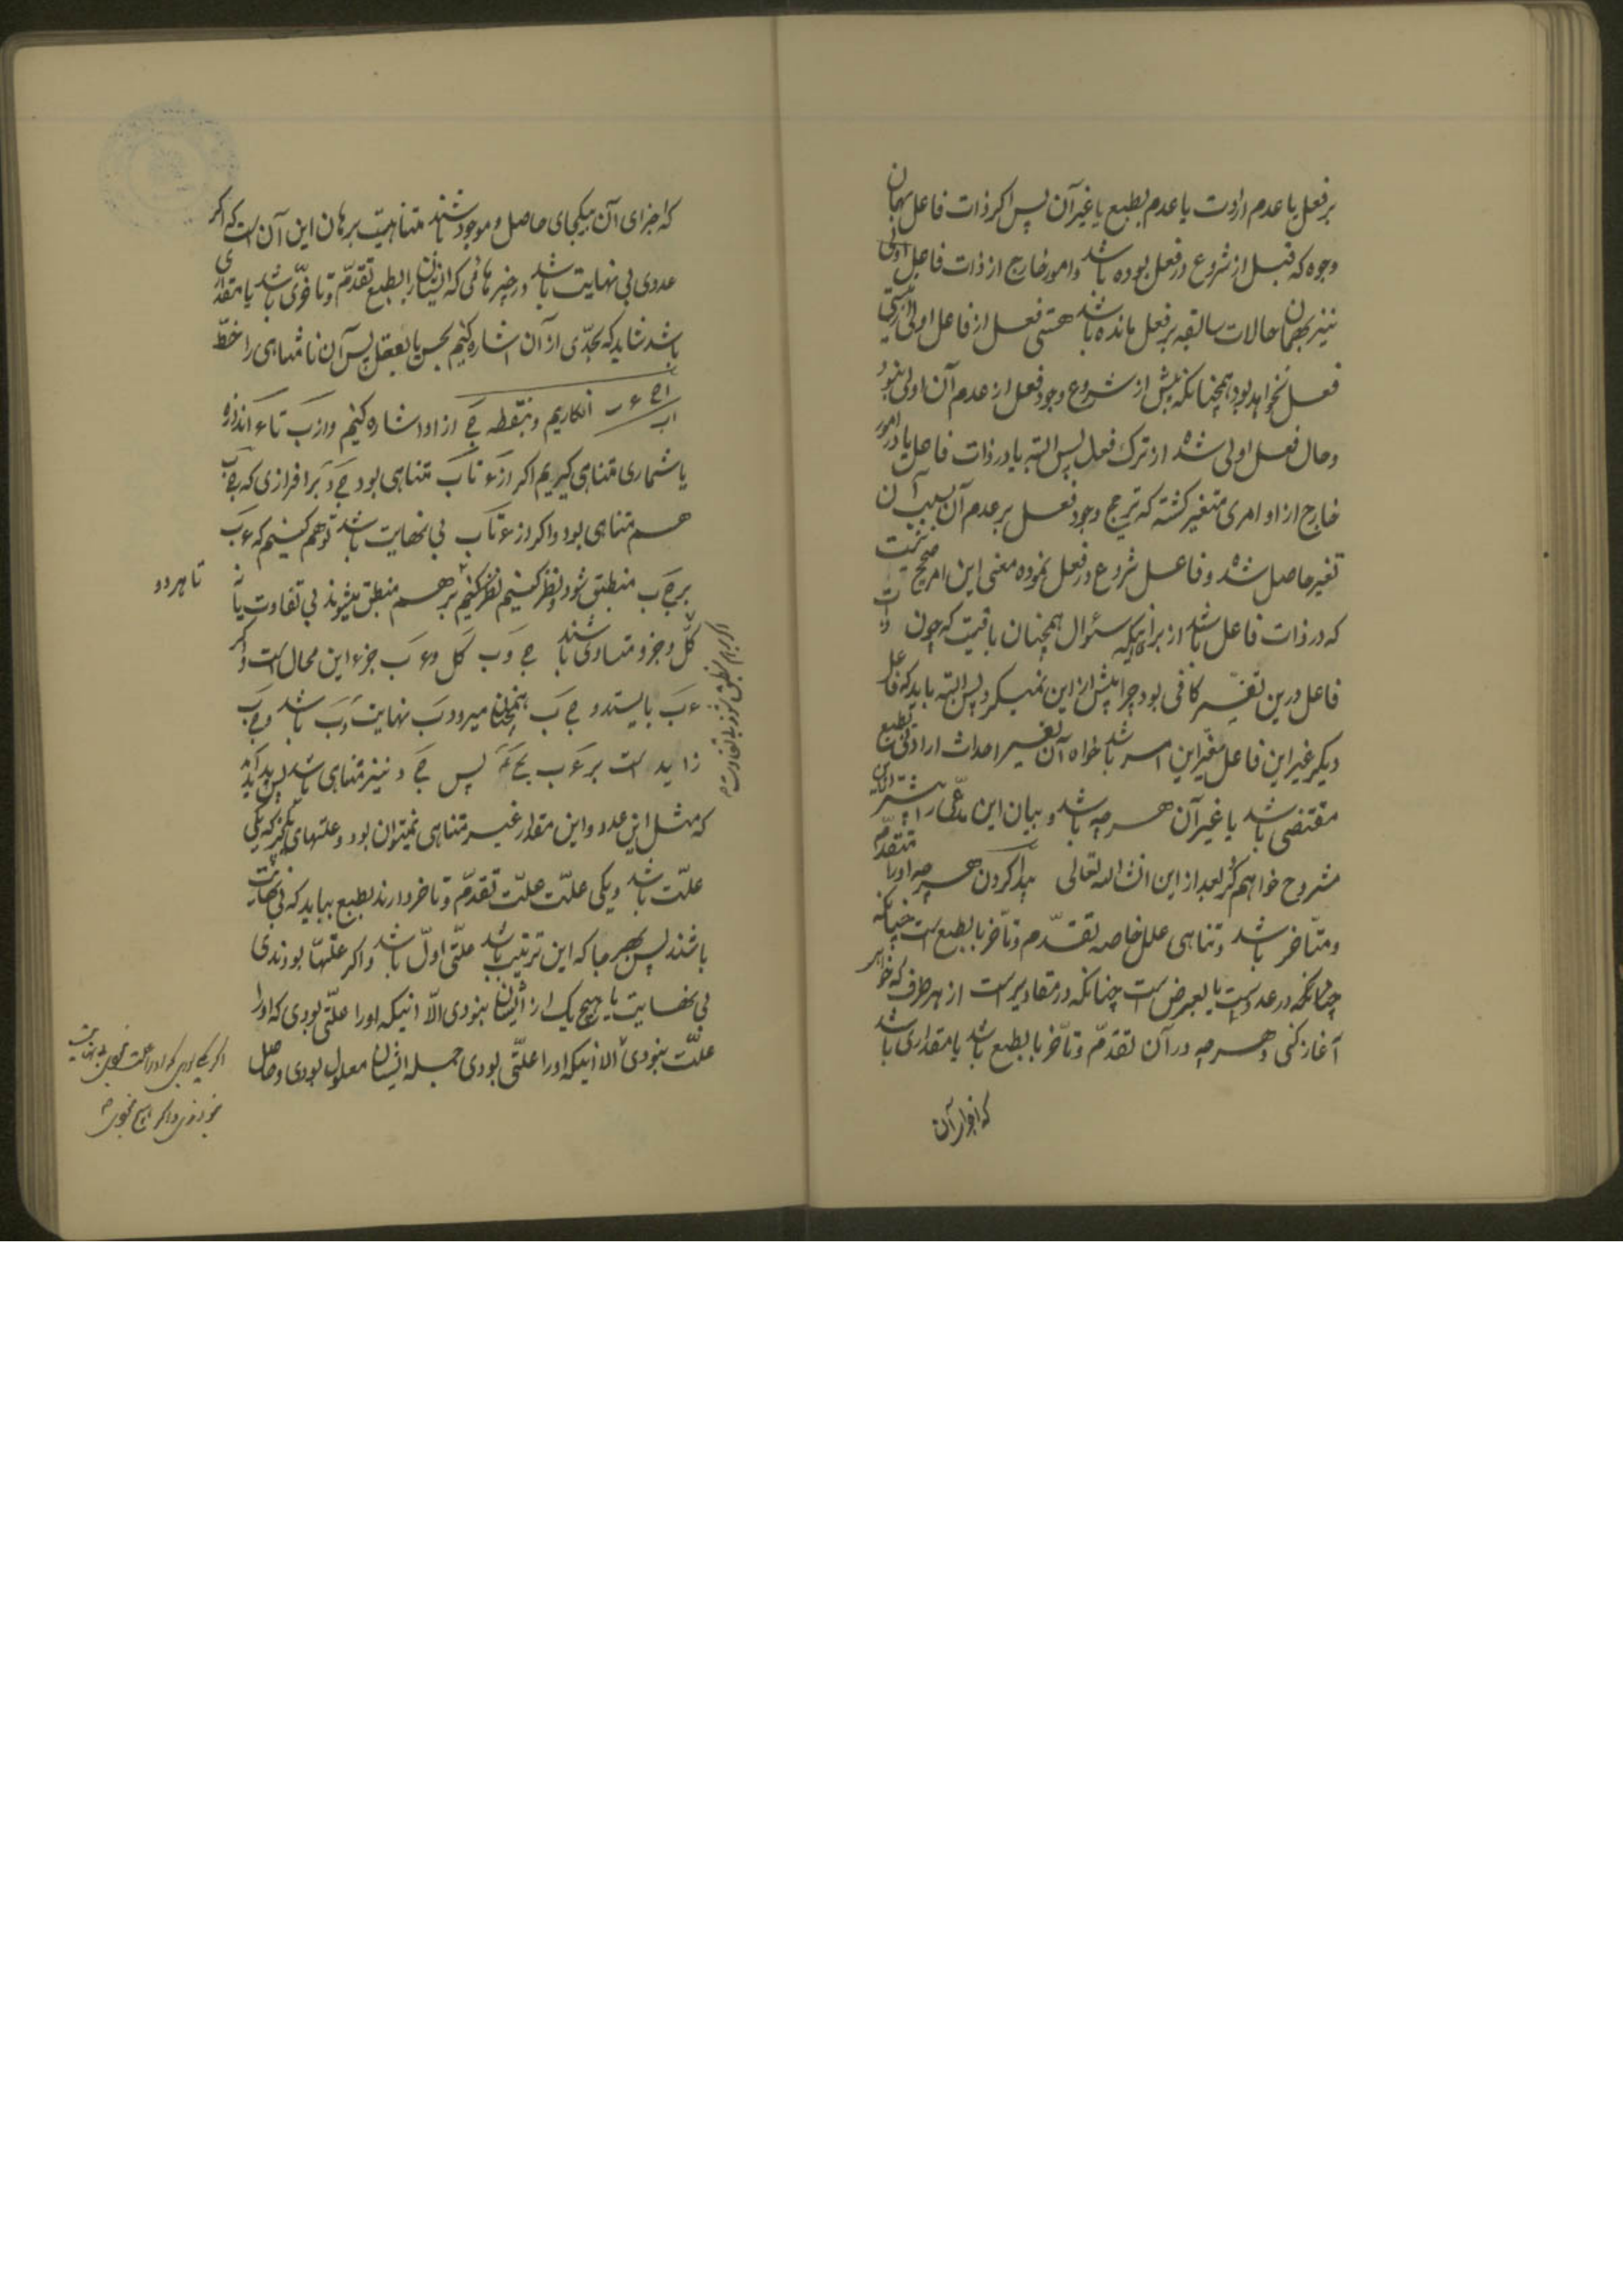 بر فعل یا عدم ارادت یا عدم بطبع یا غیر آن پس اگر ذات فاعل بهمان
وجوه که قبل از شروع در فعل بوده باشد و امور خارج از ذات فاعل اولی
نیز بهمان حالات سابقه بر فعل مانده باشد هستی فعل از فاعل اولی از نیستی
فعل نخواهد بود همچنانکه پیش از شروع وجود فعل از عدم آن اولی نبود
و حال فعل اولی شده از ترک فعل پس البته یا در ذات فاعل یا در امور
خارج از او امری متغیر کشته که ترجیح وجود فعل بر عدم آن بسبب آن
تغیر حاصل شده و فاعل شروع در فعل نموده معنی این امر صحیح نیست
که در ذات فاعل باشد از برای اینکه سئوال همچنان باقیست که چون ذات
فاعل درین تغیّر کافی بود چرا پیش از این نمیکرد پس البته باید که فاعل
دیکر غیر این فاعل مغیّر این امر باشد خواه آن تغییر احداث ارادتی بطبع
مقتضی باشد یا غیر آن هر چه باشد و بیان این مدّعی را بیشتر از این
مشروح خواهم کرد بعد از این انشاء الله تعالی پیدا کردن هر چه او را متقدّم
و متأخر باشد و تناهی علل خاصه تقدّم و تأخّر یا بطبع است چنانکه
چنانکه در عدد است یا بعرض است چنانکه در مقادیر است از هر طرف که خواهی
آغاز کنی و هر چه در آن تقدّم و تأخّر بطبع باشد یا مقداری باشد
که اجزای آن
که اجزای آن بیکجای حاصل و موجود باشند متناهیست برهان این آن است که اگر
عددی بی نهایت باشد در چیزهائی که ایشان را بطبع تقدّم و تأخّری باشد یا مقداری
باشد شاید که بحدّی از آن اشاره کنیم بحس یا بعقل پس آن نامتناهی را خطّ
اب انکاریم و بنقطه ج از او اشاره کنیم و از ب تا ء اندازه
یا شماری متناهی گیریم اگر از ء تا ب متناهی بود
هم متناهی بود و اگر از ء تا ب بی نهایت باشد توهم کنیم که ء ب
بر ج ب منطبق شود و نظر کنیم نظر کنیم بر هم منطبق میشوند بی تفاوت یا نه
تا هر دو
کل و جزو متساوی باشند ج و ب کل و ء ب جزء این محال است و اگر
ء ب بایستد و ج ب همچنان میرود ب نهایت ء ب باشد و ج ب
زاید است بر ء ب پس ج د نیز متناهی باشد پس پدید آمد
که مثل این عدد و این مقدار غیر متناهی نمیتوان بود و علتهای یک چیز که یکی
علّت باشد و یکی علّت علّت تقدّم و تأخر دارند بطبع بباید که بی نهایت
باشند پس بهر جا که این ترتیب باشد علّتی اول باشد و اگر علّتها بودندی
بی نهایت یا هیچ یک از ایشان نبودی الّا اینکه او را علّتی بودی که او را
علّت نبودی الا اینکه او را علّتی بودی جمله ایشان معلول بودی و حاصل